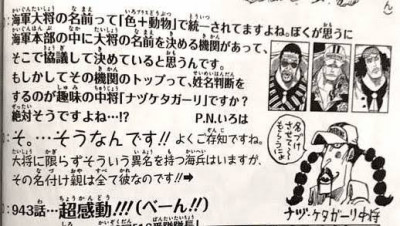 海軍大将の名前って「色+動物」で統一されてますよね。ぼくが思うに
海軍本部の中に大将の名前を決める機関があって、
そこで協議して決めていると思うんです。
もしかしてその機関のトップって、姓名判断を
するのが趣味の中将「ナヅケタガーリ」ですか?
絶対そうですよね…!? P.N.いろは
そ。…そうなんです!! よくご存知ですね。
大将に限らずそういう異名を持つ海兵はいますが、
その名付け親は全て彼なのです!!➡
名づけ
させて〜〜
もらうにょ
ナヅ・ケタガーリ中将
:943話…超感動!!!(べーん!!)